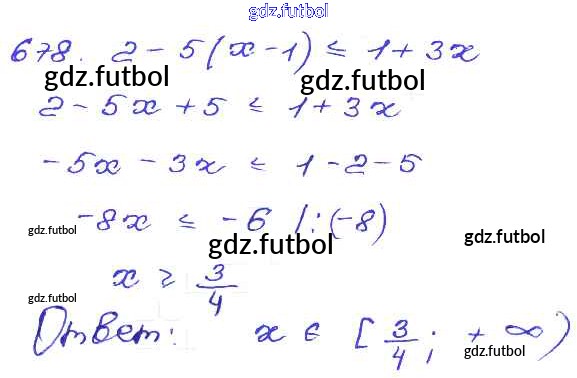 gdz.futbol
678. 2 - 5(x - 1) ≤ 1 + 3x
gdz.futbol gdz.futbol
2 - 5x + 5 ≤ 1 + 3x
-5x - 3x ≤ 1 - 2 - 5
-8x ≤ -6 /:(-8)
gdz.futbol gdz.futbol gdz.futbol
x ≥ 3/4
gdz.futbol
Ответ: x ∈ [3/4; +∞)
gdz.futbol